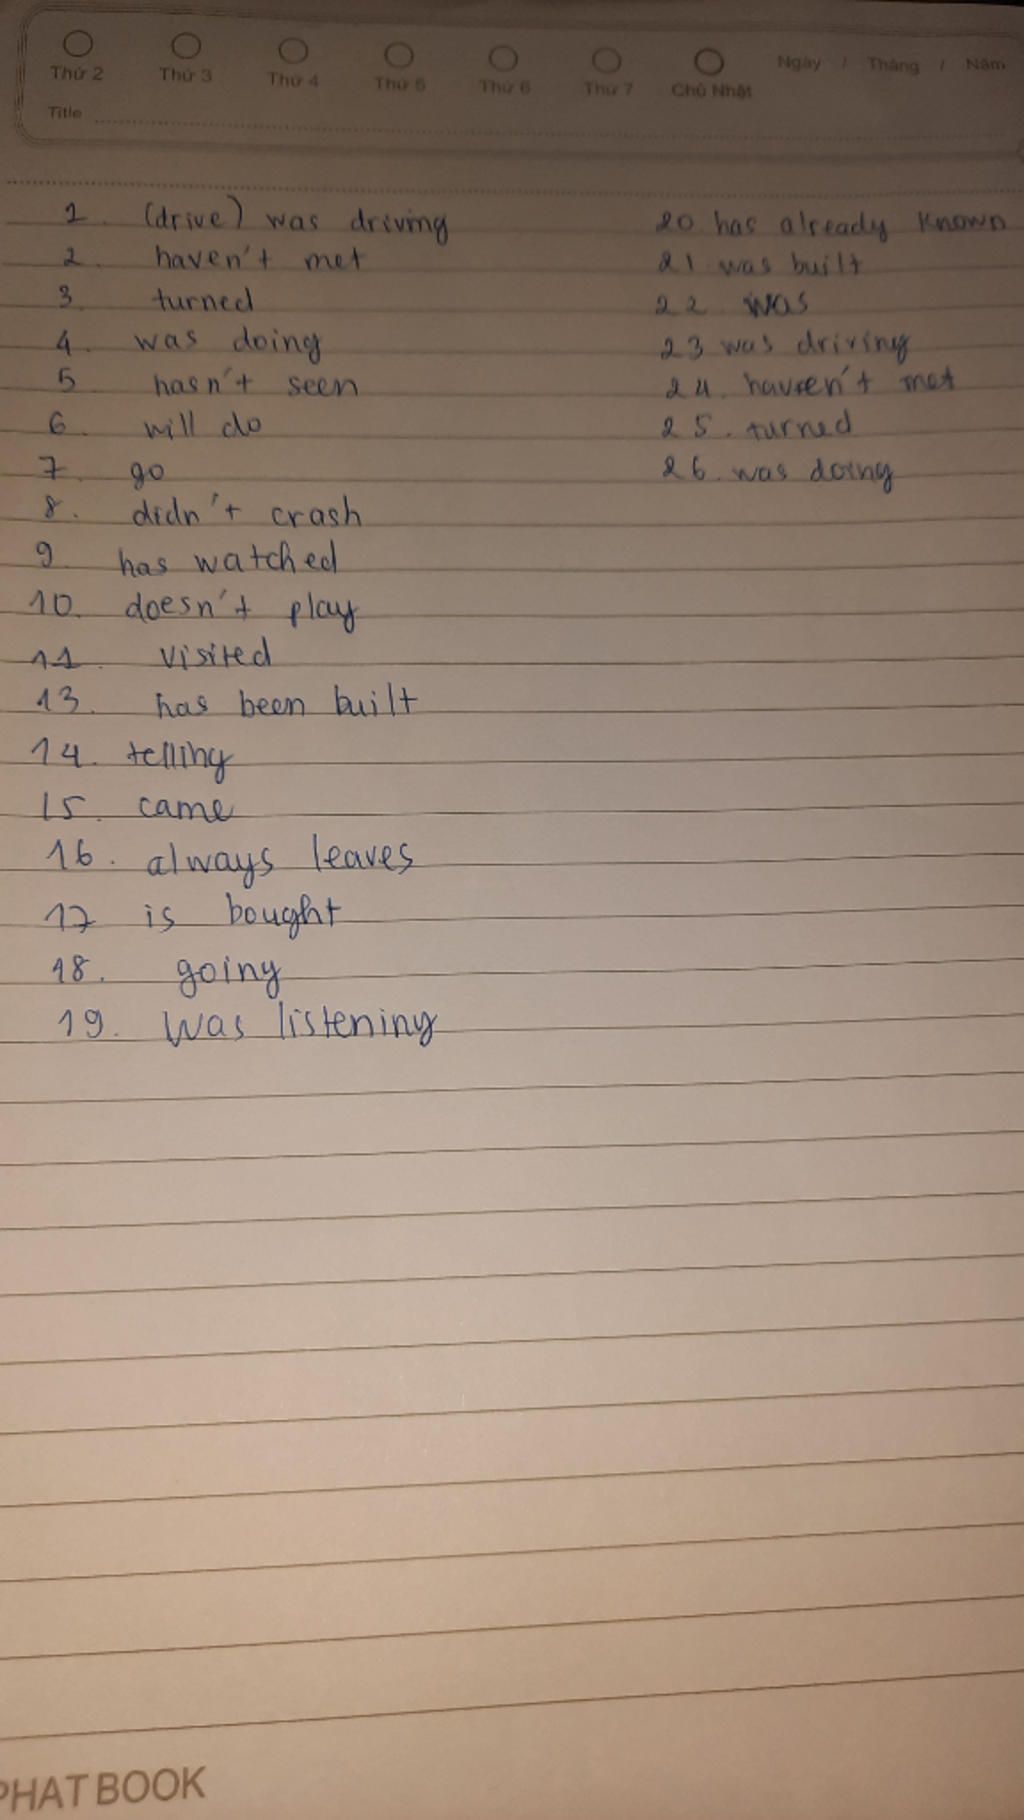 Thứ 2 Thứ 3 Thứ 4 Thứ 5 Thứ 6 Thứ 7 Chủ Nhật Ngày / Tháng / Năm
Title
1. (drive) was driving
2. haven't met
3. turned
4. was doing
5 hasn't seen
6. will do
7. go
8. didn't crash
9. has watched
10. doesn't play
11. visited
13. has been built
14. telling
15. came
16. always leaves
17 is bought
18. going
19. was listening
20. has already known
21. was built
22. was
23 was driving
24. haven't met
25. turned
26. was doing
PHAT BOOK